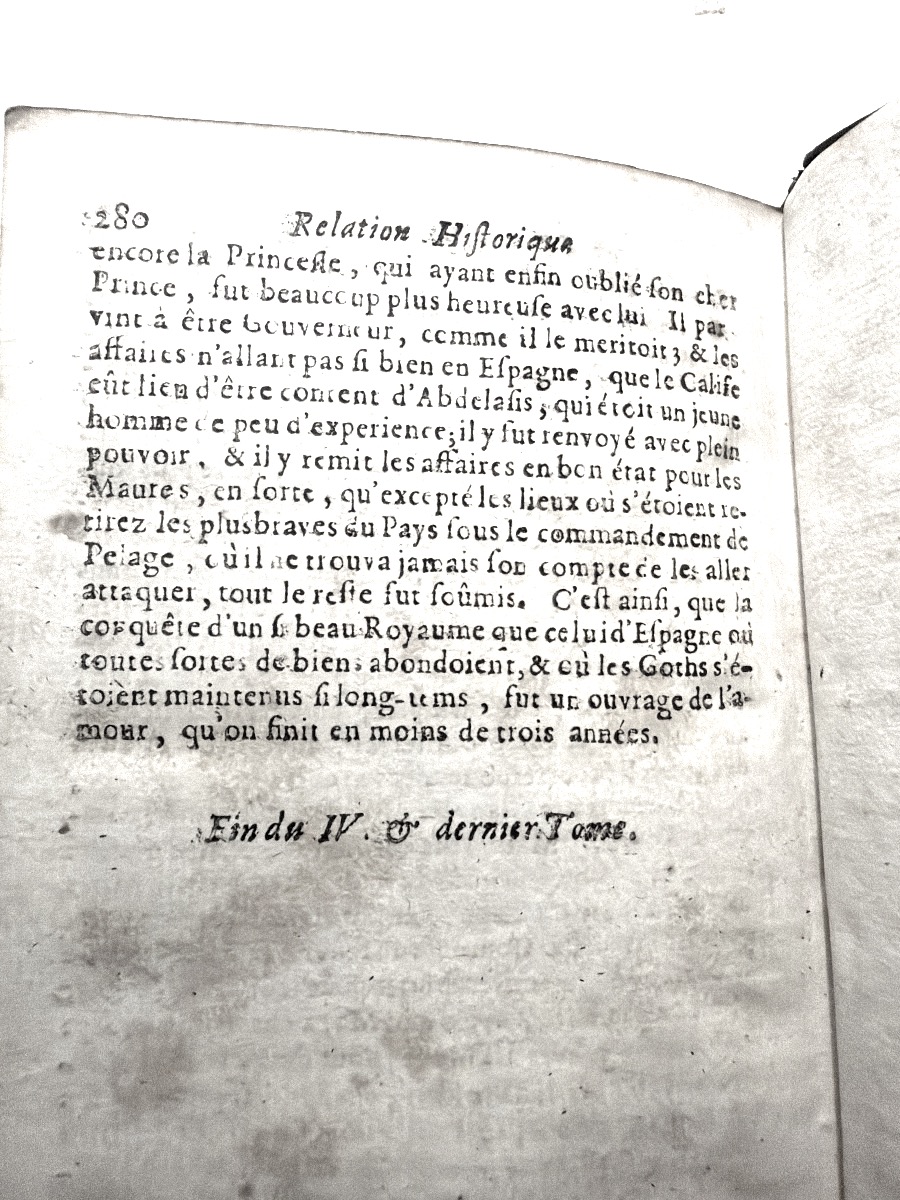 280 Relation Historique
encore la Princesse, qui ayant enfin oublié son cher
Prince, fut beaucoup plus heureuse avec lui Il par-
vint à être Gouverneur, comme il le meritoit; & les
affaires n'allant pas si bien en Espagne, que le Calife
eût lieu d'être content d'Abdelasis, qui étoit un jeune
homme de peu d'experience; il y fut renvoyé avec plein
pouvoir, & il y remit les affaires en bon état pour les
Maures, en sorte, qu'excepté les lieux où s'étoient re-
tirez les plus braves du Pays sous le commandement de
Pelage, où il ne trouva jamais son compte de les aller
attaquer, tout le reste fut soûmis. C'est ainsi, que la
conquête d'un si beau Royaume que celui d'Espagne où
toutes sortes de biens abondoient, & où les Goths s'é-
toient maintenus si long-tems, fut un ouvrage de l'a-
mour, qu'on finit en moins de trois années.
Fin du IV. & dernier Tome.